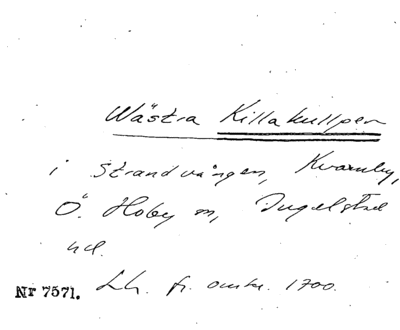 Wästra Killakullper
i Strandvången, Kvarnby,
Ö. Hoby sn, Ingelstad
hd.
Nr 7571. Lh. fr. omkr. 1700.